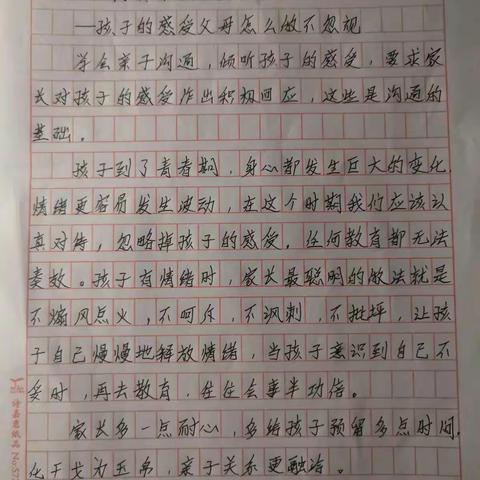 —孩子的感受父母怎么做不忽视
学会亲子沟通，倾听孩子的感受，要求家
长对孩子的感受作出积极回应，这些是沟通的
基础。
孩子到了青春期，身心都发生巨大的变化
情绪更容易发生波动，在这个时期我们应该认
真对待，忽略掉孩子的感受，任何教育都无法
奏效。孩子有情绪时，家长最聪明的做法就是
不煽风点火，不呵斥，不讽刺，不批评，让孩
子自己慢慢地释放情绪，当孩子意识到自己不
妥时，再去教育，往往会事半功倍。
家长多一点耐心，多给孩子预留多点时间，
化干戈为玉帛，亲子关系更融洽。